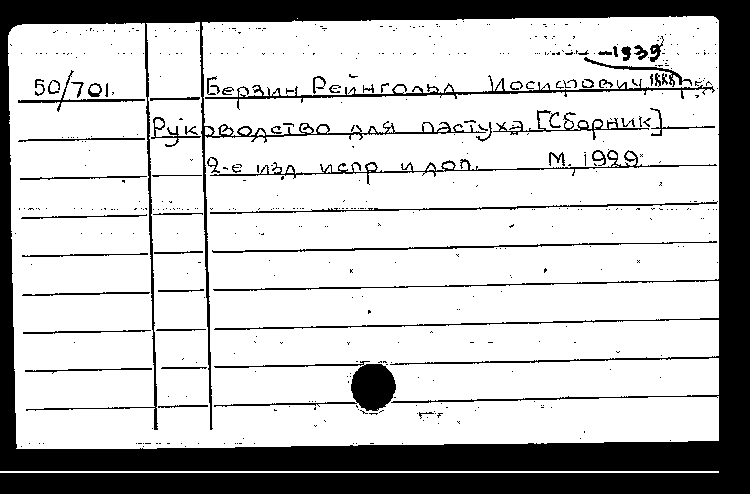 -1939
50/701. Берзин, Рейнгольд Иосифович, 1888 ред.
Руководство для пастуха. [Сборник]
2-е изд. испр. и доп. М., 1929.